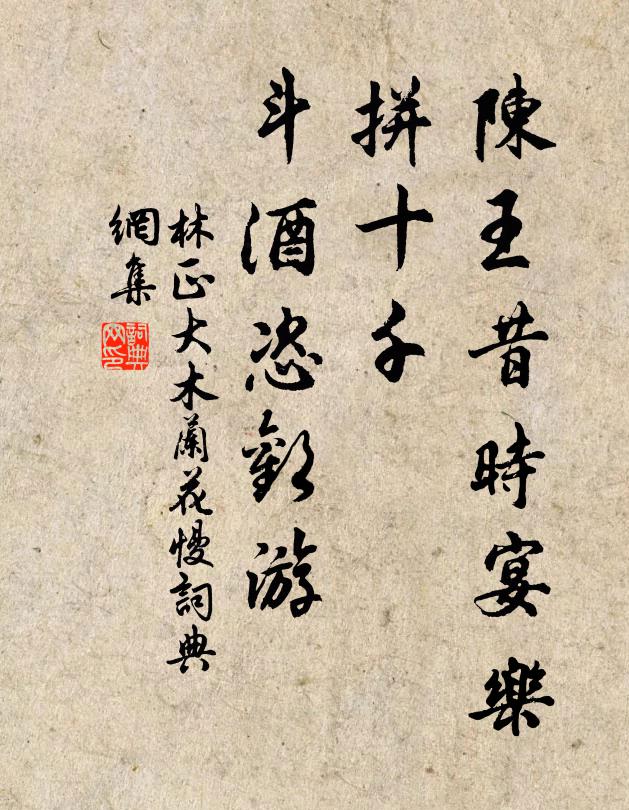 陳王昔時宴樂
拼十千
斗酒恣歡游
林正大木蘭花慢詞典
網集
詞典网印